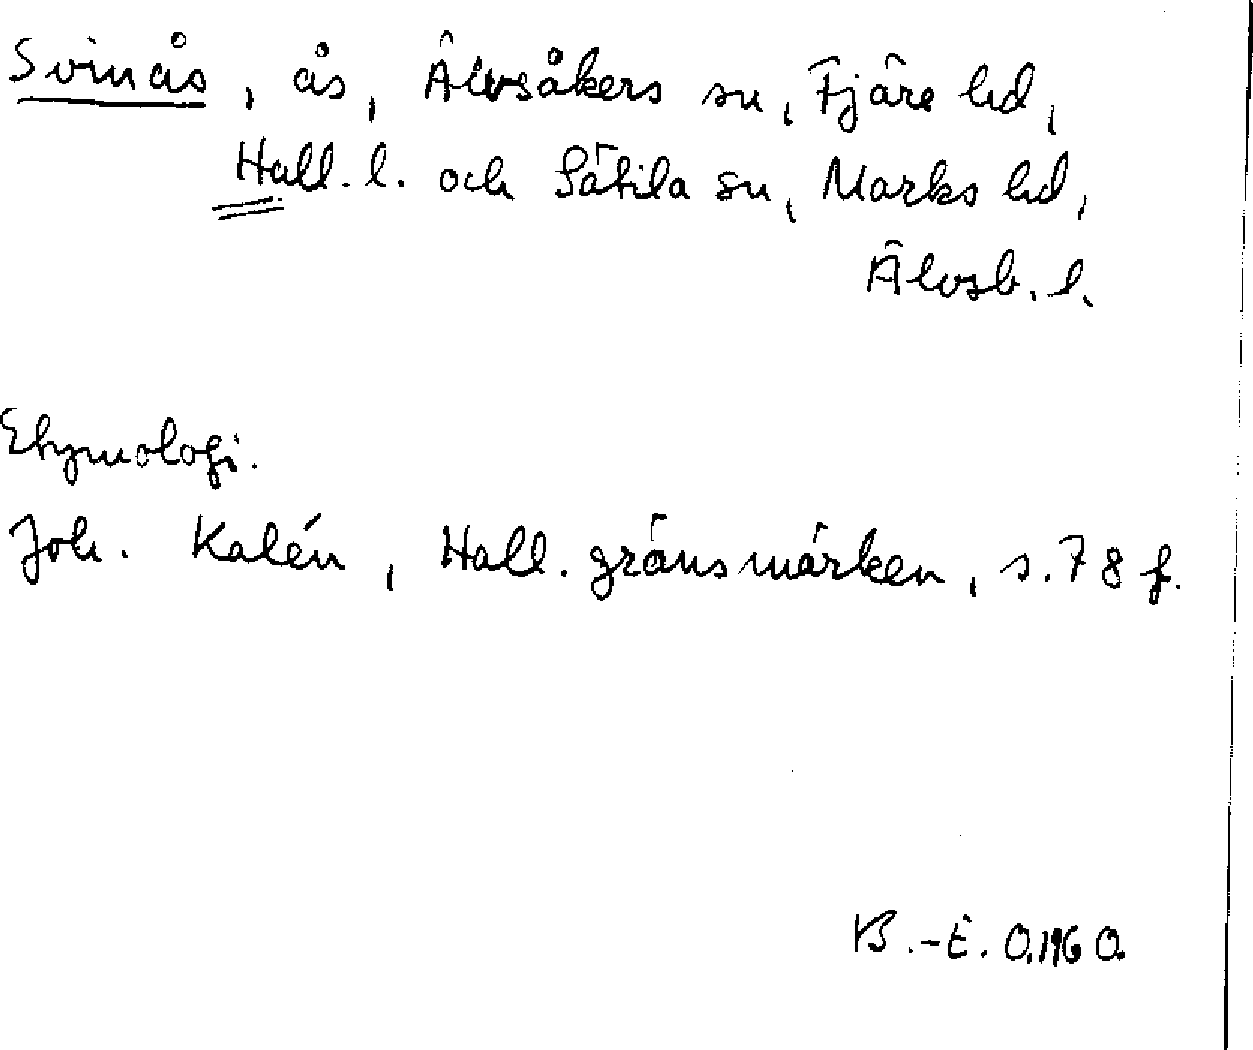 Svinås, ås, Älvsåkers sn, Fjäre hd,
Hall. l. och Sätila sn, Marks hd,
Älvsb. l.
Etymologi.
Joh. Kalén, Hall. gränsmärken, s. 78 f.
B.-E. O. 1960.